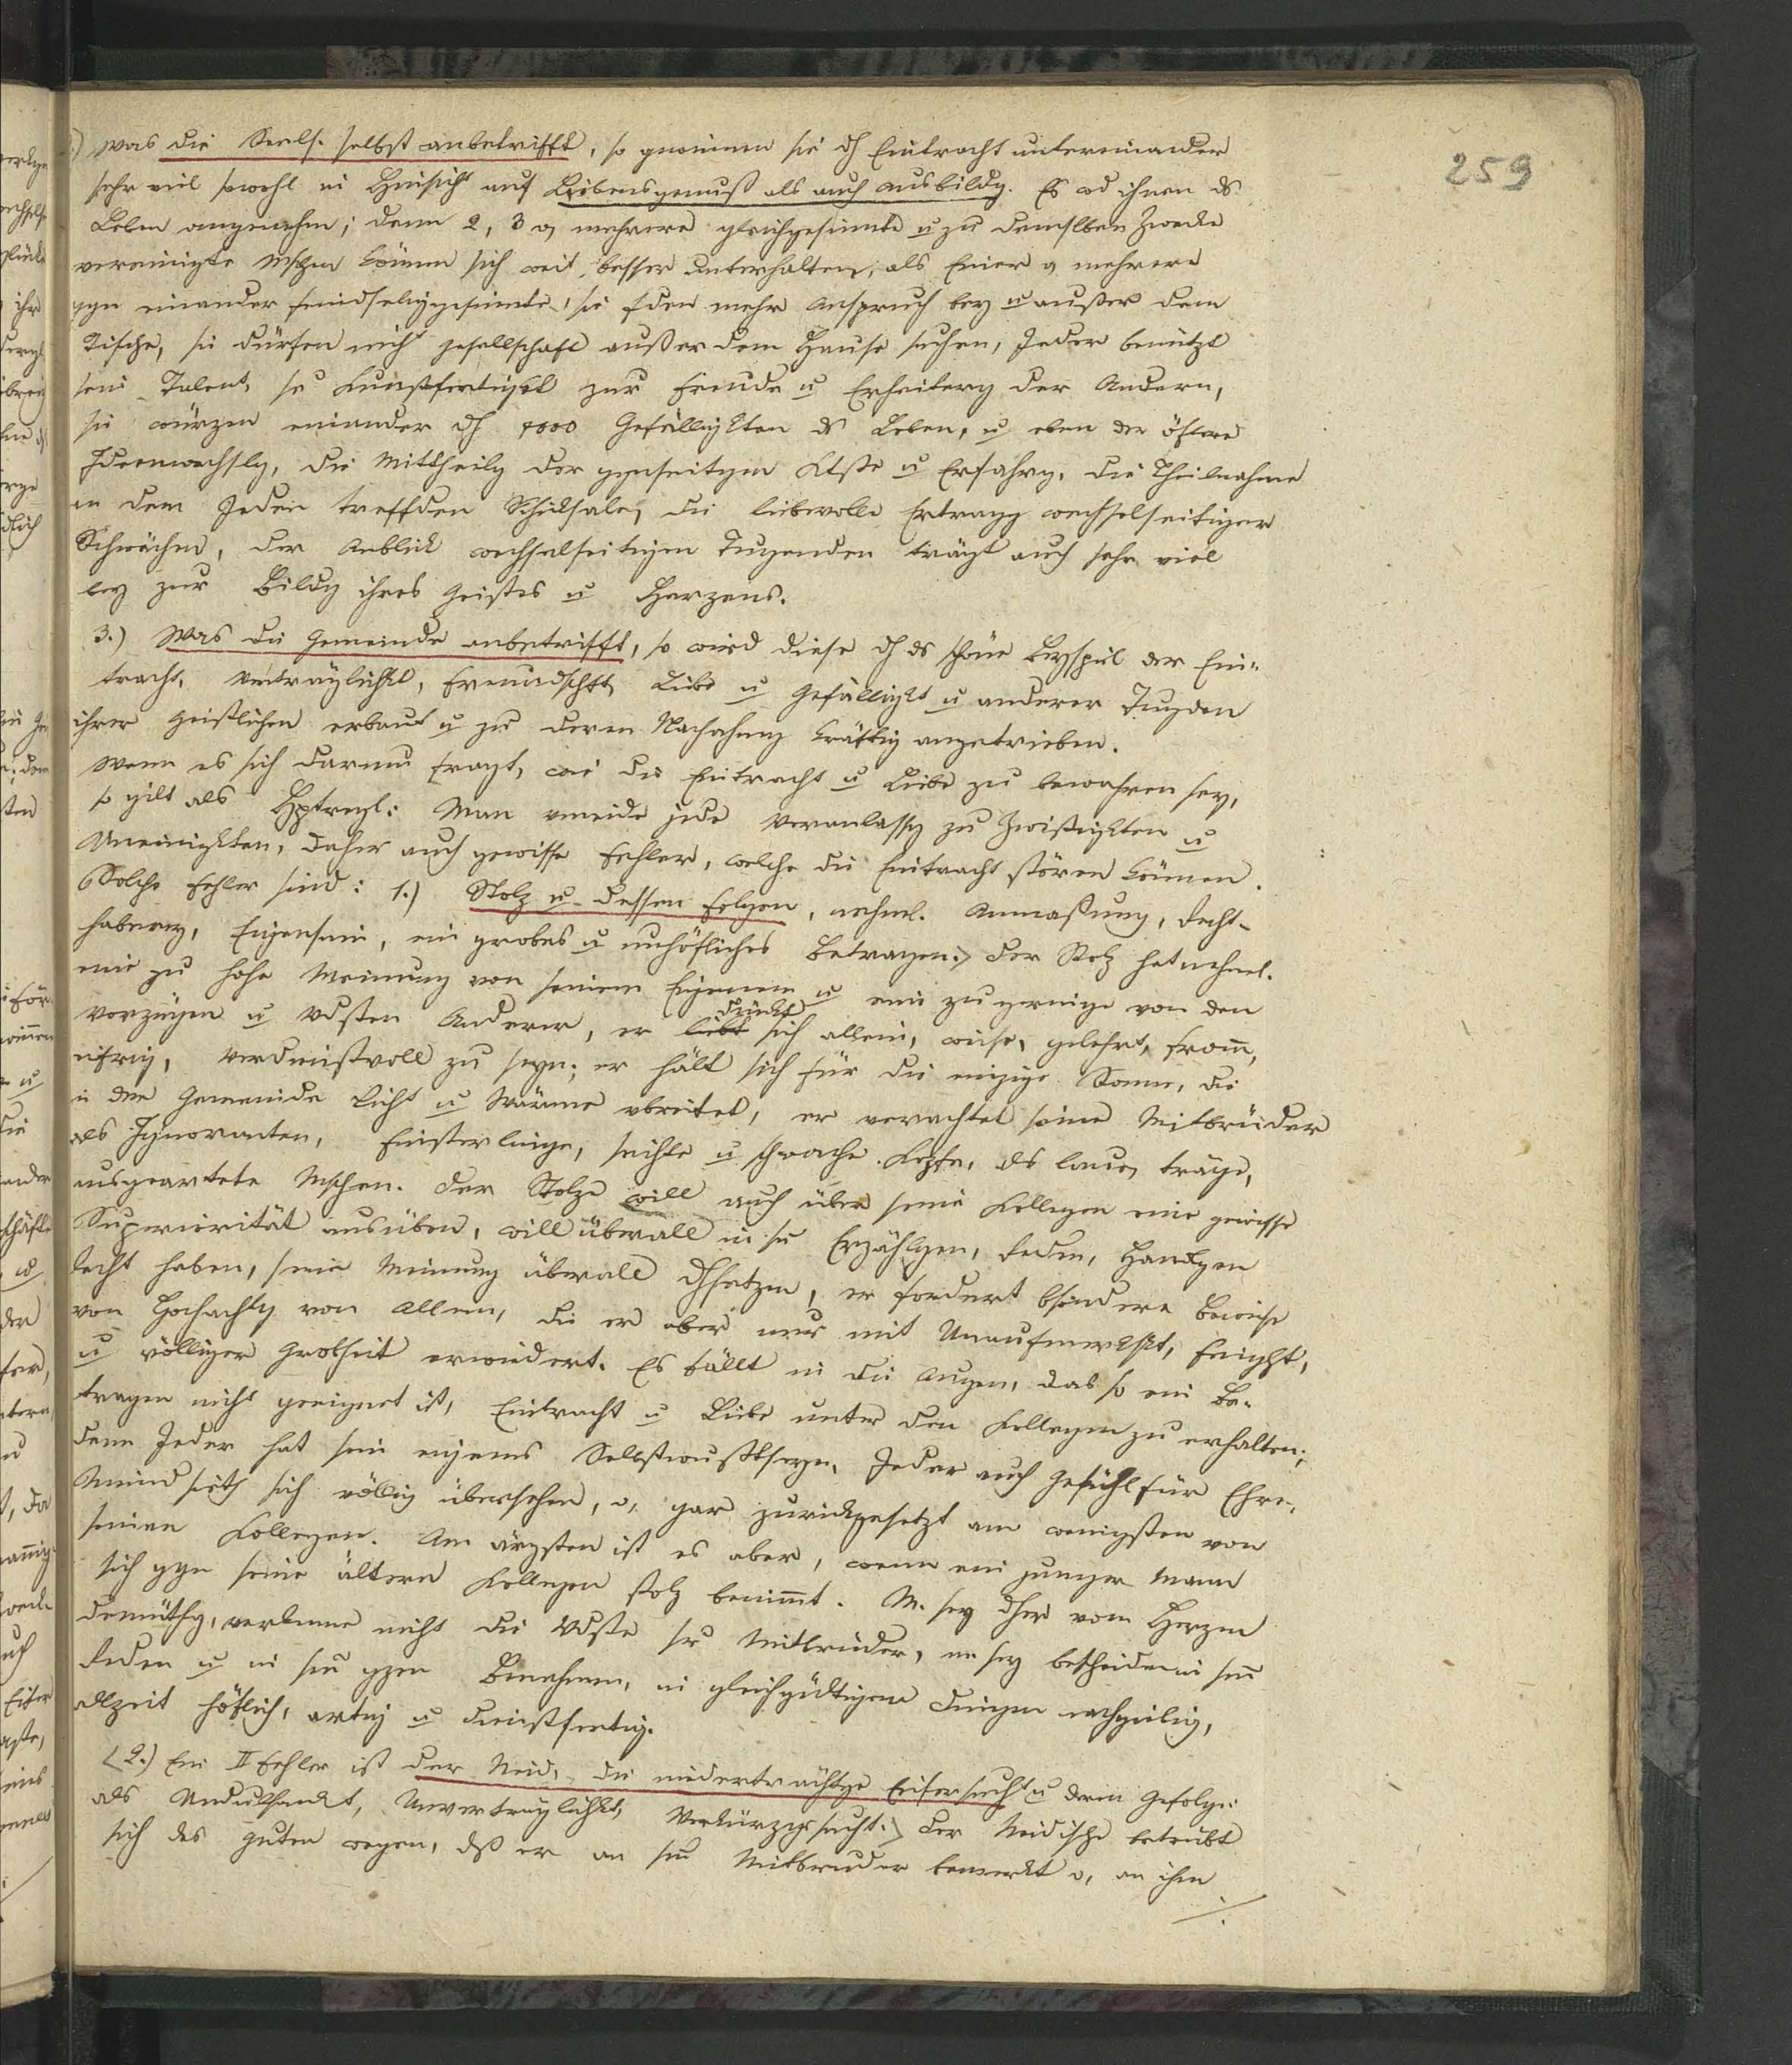 259
) Was die Seels. selbst anbetrifft, so gewinnen sie dh Eintracht untereinander
sehr viel sowohl in Hinsicht auf Lebensgenuß als auch Ausbildg. Es wd ihnen ds
Leben angenehm; denn 2, 3 o, mehrere gleichgesinnte u zu demselben Zwecke
vereinigte Mschen können sich weit besser unterhalten, als Einer o, mehrere
ggn einander feindseliggesinnte, sie fden mehr Anspruch bey u außer dem
Tische, sie dürfen nicht Gesellschaft außer dem Hause suchen, Jeder benützt
sein Talent, se Kunstfertigkt zur Freude u Erheiterg der Andern,
sie würzen einander dh 1000 Gefälligkten ds Leben, u eben der öftere
Ideenwechslg, die Mittheilg der ggnseitgen Ktße u Erfahrg, die Theilnahme
an dem Jeden treffden Schicksale, die liebevolle Ertragg wechselseitiger
Schwächen, der Anblick wechselseitigen Tugenden trägt auch sehr viel
bey zur Bildg ihres Geistes u Herzens.
3.) Was die Gemeinde anbetrifft, so wird diese dh ds schöne Beyspiel der Ein-
tracht, Verträglichkt, Freundschft, Liebe u Gefälligkt u anderer Tugden
ihrer Geistlichen erbaut u zu deren Nachahmg kräftig angetrieben.
Wenn es sich darum fragt, wie die Eintracht u Liebe zu bewahren sey,
so gilt als Hptregl: Man vmeide jede Veranlassg zu Zwistigkten u
Uneinigkten, daher auch gewisse Fehler, welche die Eintracht stören können.
Solche Fehler sind: 1.) Stolz u dessen Folgen, nehml. Anmaßung, Recht-
haberey, Eigensinn, ein grobes u unhöfliches Betragen. Der Stolz hat nehml.
eine zu hohe Meinung von seinem Eigenen u eine zu geringe von den
Vorzügen u Vdsten Anderer, er liebt dünkt sich allein, weise, gelehrt, from,
eifrig, verdienstvoll zu seyn; er hält sich für die einzige Sonne, die
in der Gemeinde Licht u Wärme vbreitet, er verachtet seine Mitbrüder
als Ignoranten, Finsterlinge, seichte u schwache Köpfe, als laue, träge,
ausgeartete Mschen. Der Stolze will auch über seine Kollegen eine gewisse
Superiorität ausüben, will überall in sn Erzählgen, Reden, Handlgen
Recht haben, seine Meinung überall dhsetzen, er fordert bsondere Beweise
von Hochachtg von Allen, die er aber nur mit Unaufmerkskt,
u völliger Grobheit erwiedert. Es fällt in die Augen, das so ein Be-
tragen nicht geeignet ist, Eintracht u Liebe unter den Kollegen zu erhalten;
denn Jeder hat sein eigenes Selbstbewußtseyn, Jeder auch Gefühl für Ehre,
Niemand sieht sich völlig übersehen, o, gar zurückgesetzt am wenigsten von
seinen Kollegen. Am ärgsten ist es aber, wenn ein junger Mann
sich ggn seine ältern Kollegen stolz benimmt. M. sey dher vom Herzen
demüthg, verkenne nicht die Vdste sr Mitbrüder, m sey bescheiden in sn
Reden u in sn gzen Benehmen, in gleichgültigen Dingen nachgiebig,
allzeit höflich, artig u dienstfertig.
(2.) Ein II Fehler ist der Neid, die niederträchtge Eifersucht u deren Gefolge:
als Unduldsamkt, Unverträglichkt, Verkürzgssucht. Der Neidische betrübt
sich des Guten wegen, dß er an sn Mitbruder bemerkt o, an ihm
./.